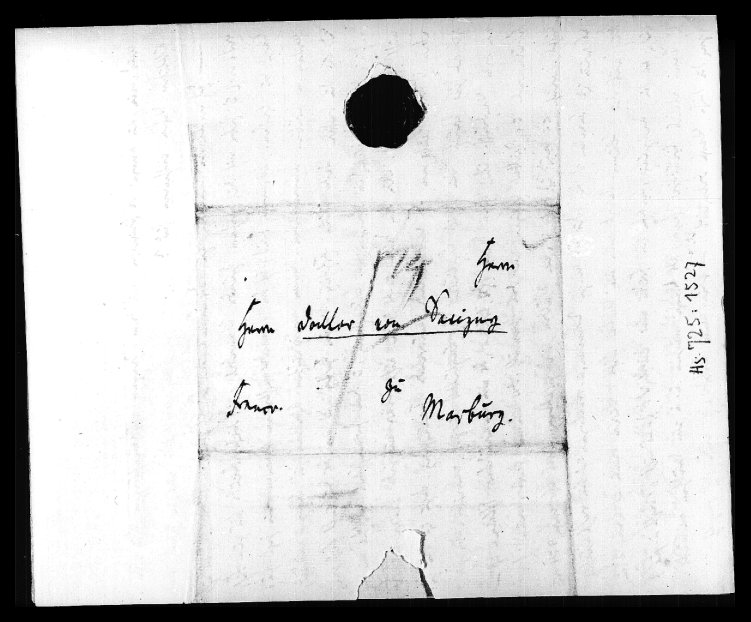 Herrn
Herrn Doctor von Savigny
zu
Franco. Marburg.
Hs. 725: 1527